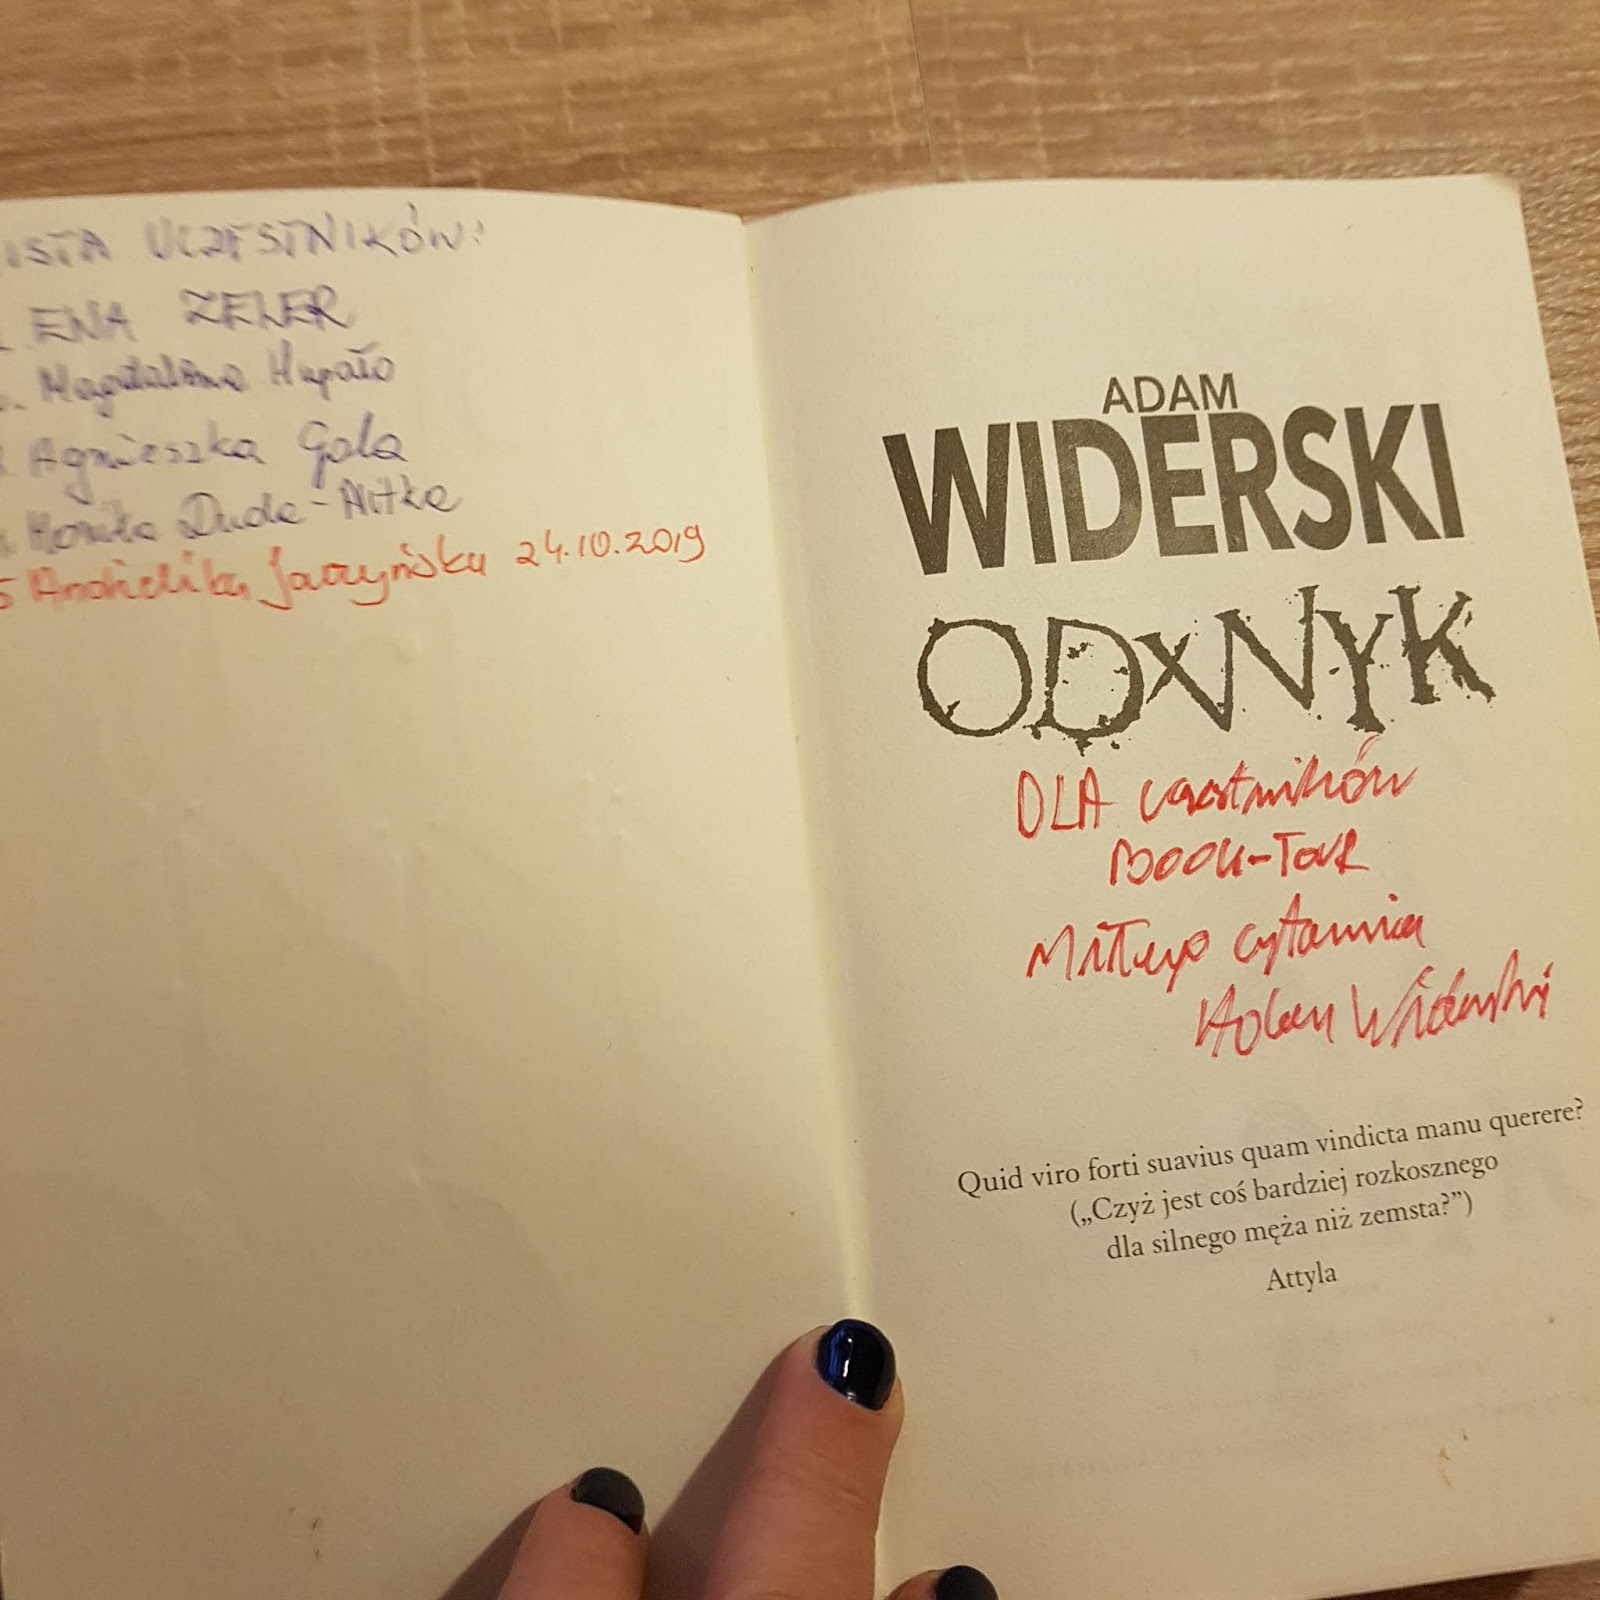 LISTA UCZESTNIKÓW:
1. EWA ZELER
Magdalena
3. Agnieszka Gala
4. Monika Duda-
5 Andżelika Jaczyńska 24.10.2019
ADAM
WIDERSKI
ODWYK
DLA uczestników
BOOK-TOUR
Miłego czytania
Adam Widerski
Quid viro forti suavius quam vindicta manu querere?
(„Czyż jest coś bardziej rozkosznego
dla silnego męża niż zemsta?”)
Attyla